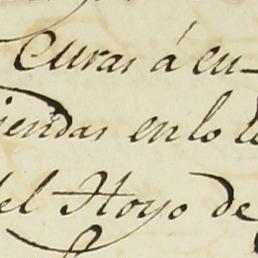 Curas á cu-
iendas en lo te
del Hoyo de